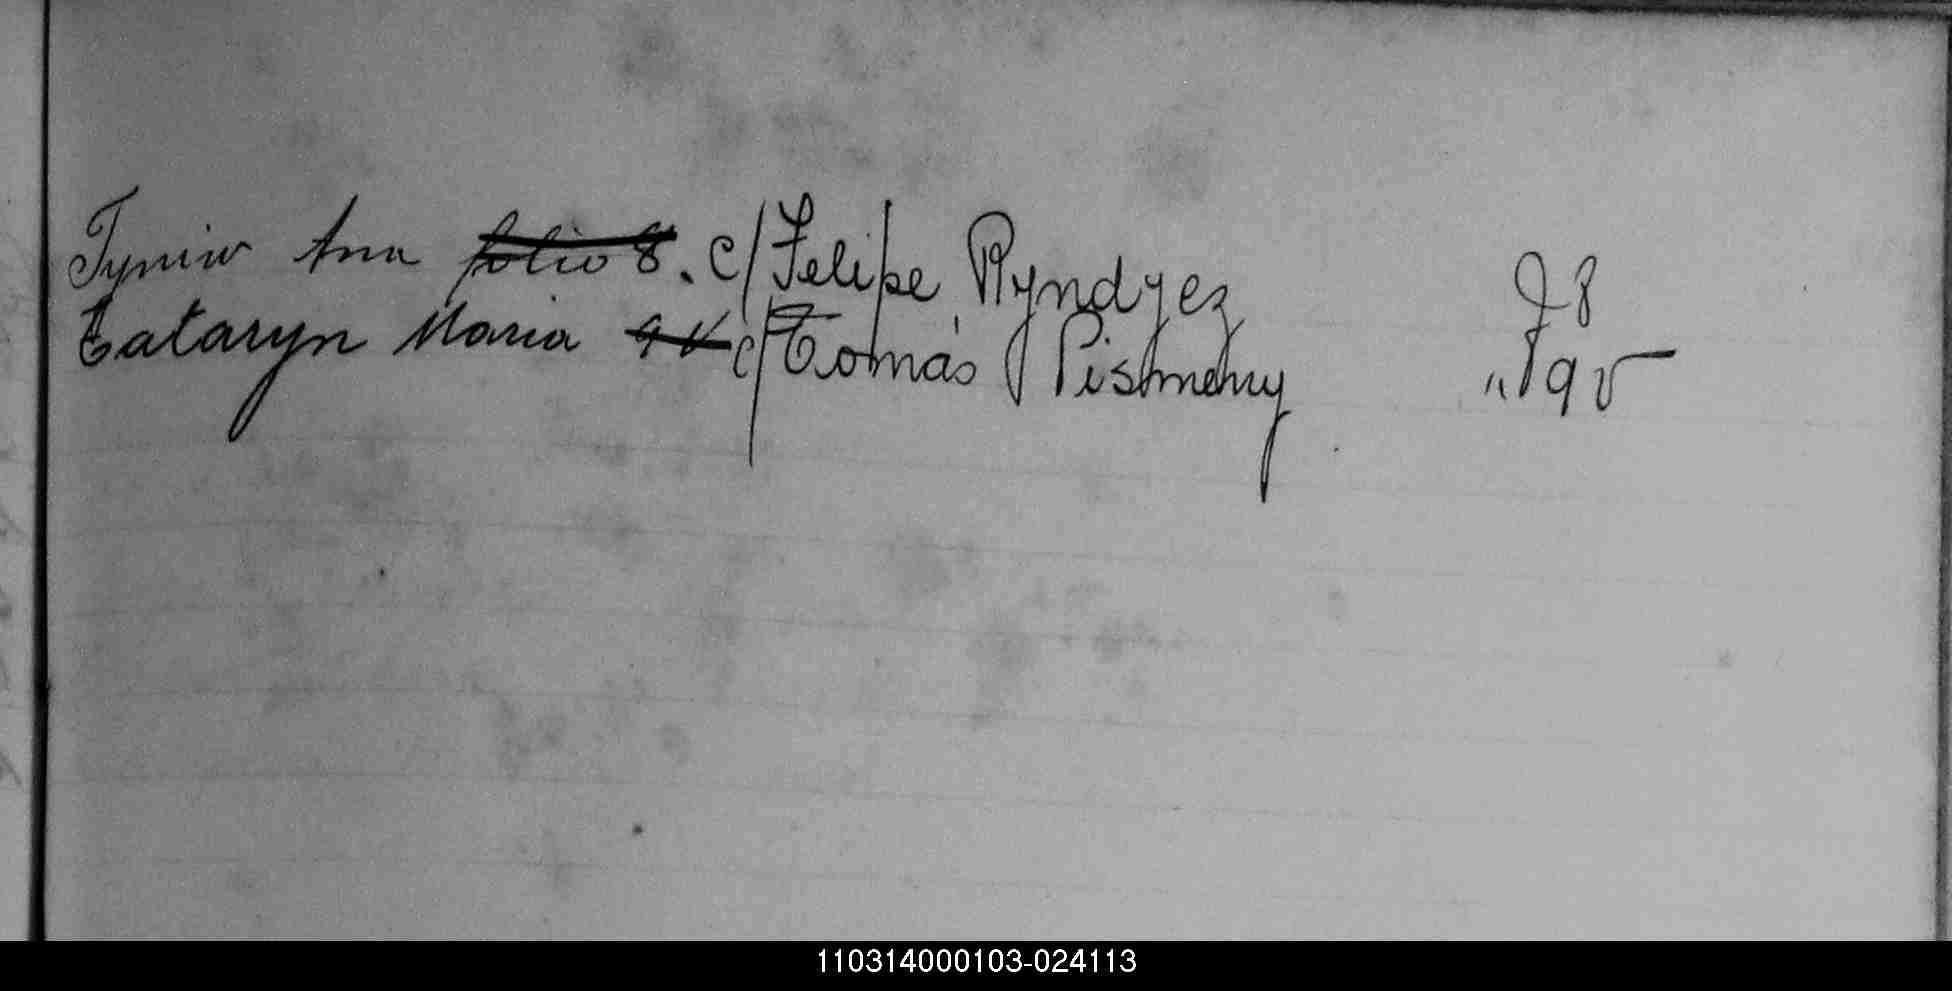 Tyniw Ana folio 8. c/ Felipe Ryndyez J 8
Tataryn Maria 9 v c/ Tomás Pismeny " 9 v
110314000103-024113